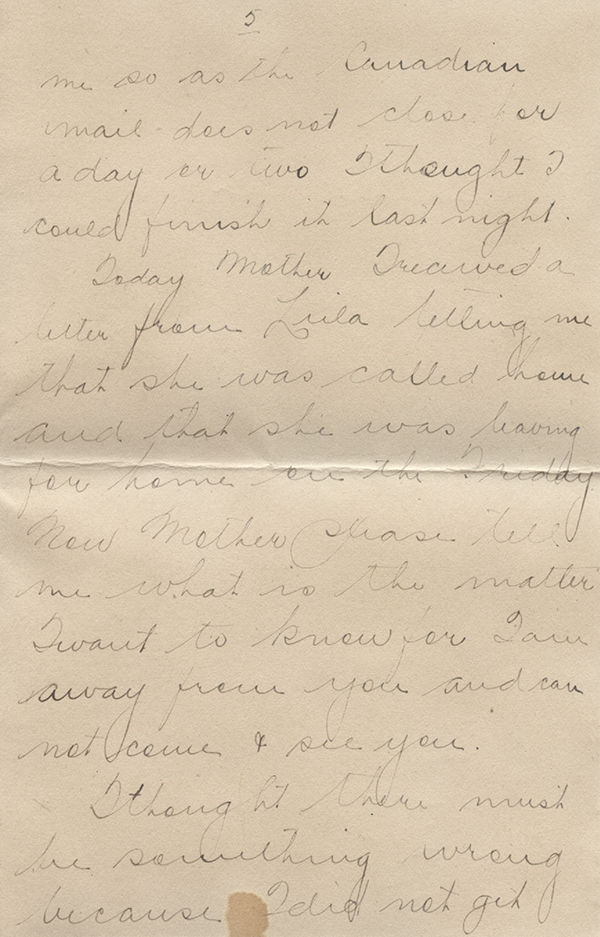 5
me so as the Canadian
mail does not close for
a day or two I thought I
could finish it last night.
Today Mother I received a
letter from Lula telling me
that she was called home
and that she was leaving
for home on the Friday
Now Mother please tell
me what is the matter
I want to know for I am
away from you and can
not come & see you.
I thought there must
be something wrong
because I did not get